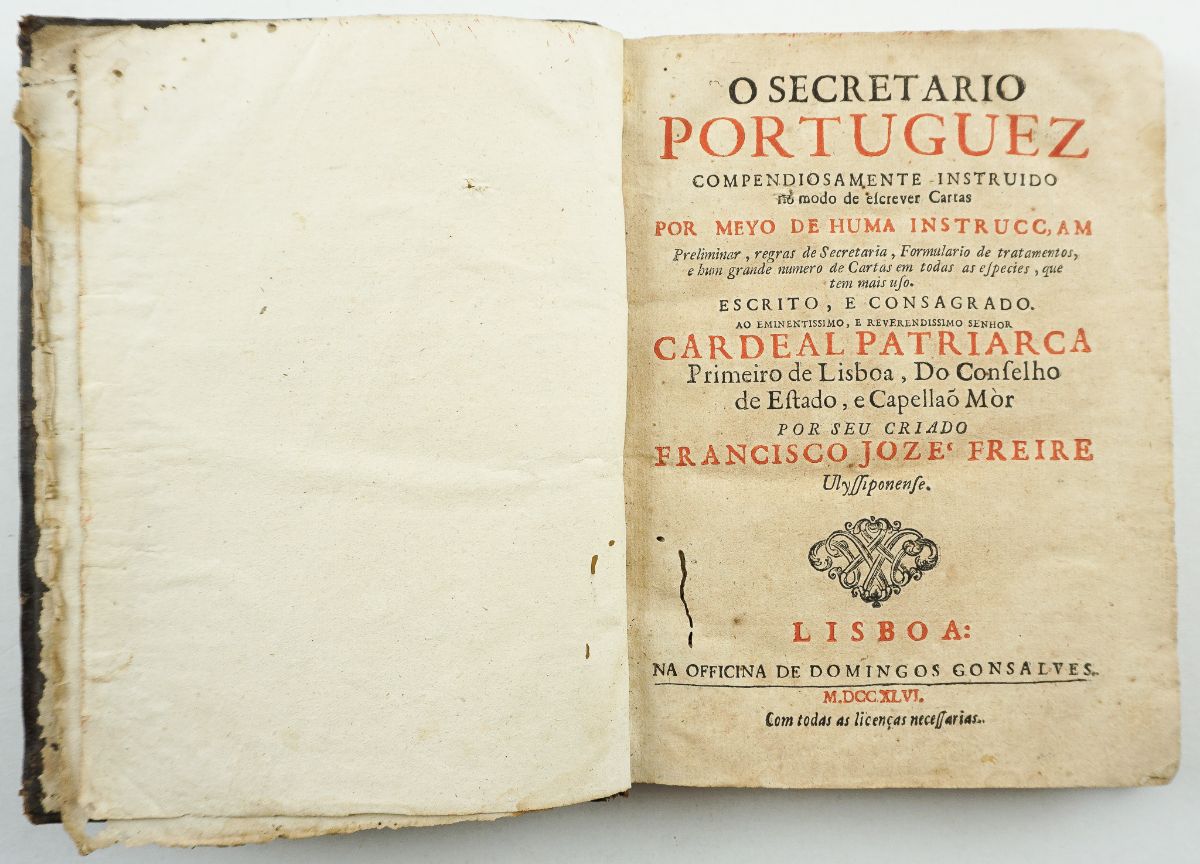 O SECRETARIO
PORTUGUEZ
COMPENDIOSAMENTE INSTRUIDO
no modo de eſcrever Cartas
POR MEYO DE HUMA INSTRUCC,AM
Preliminar, regras de Secretaria, Formulario de tratamentos,
e hum grande numero de Cartas em todas as eſpecies, que
tem mais uſo.
ESCRITO, E CONSAGRADO.
AO EMINENTISSIMO, E REVERENDISSIMO SENHOR
CARDEAL PATRIARCA
Primeiro de Lisboa, Do Conſelho
de Eſtado, e Capellaõ Mòr
POR SEU CRIADO
FRANCISCO JOZE' FREIRE
Ulyſſiponenſe.
LISBOA:
NA OFFICINA DE DOMINGOS GONSALVES.
M.DCC.XLVI.
Com todas as licenças neceſſarias.